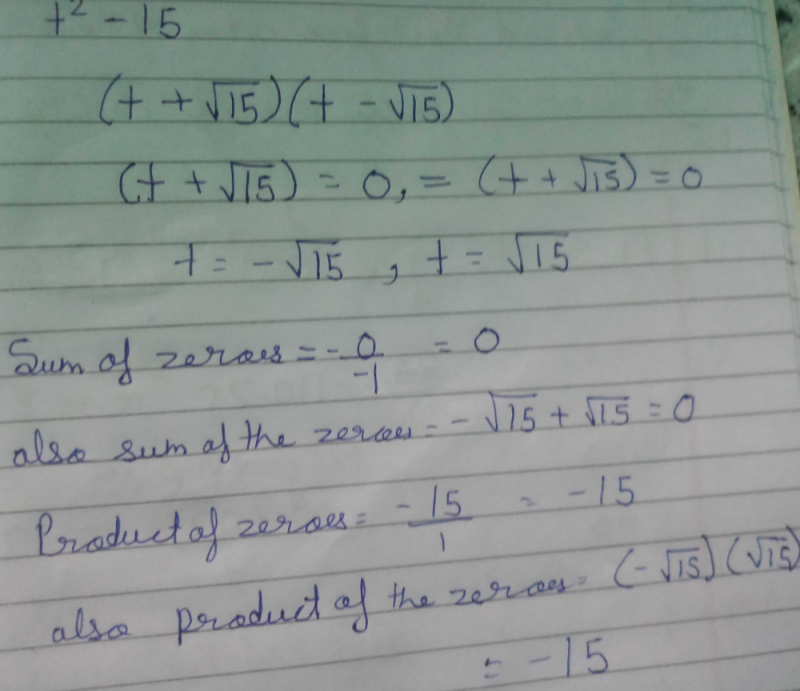 t² - 15
(t + √15)(t - √15)
(t + √15) = 0, = (t + √15) = 0
t = -√15 , t = √15
Sum of zeroes = -0/-1 = 0
also sum of the zeroes = -√15 + √15 = 0
Product of zeroes = -15/1 = -15
also product of the zeroes = (-√15)(√15)
= -15